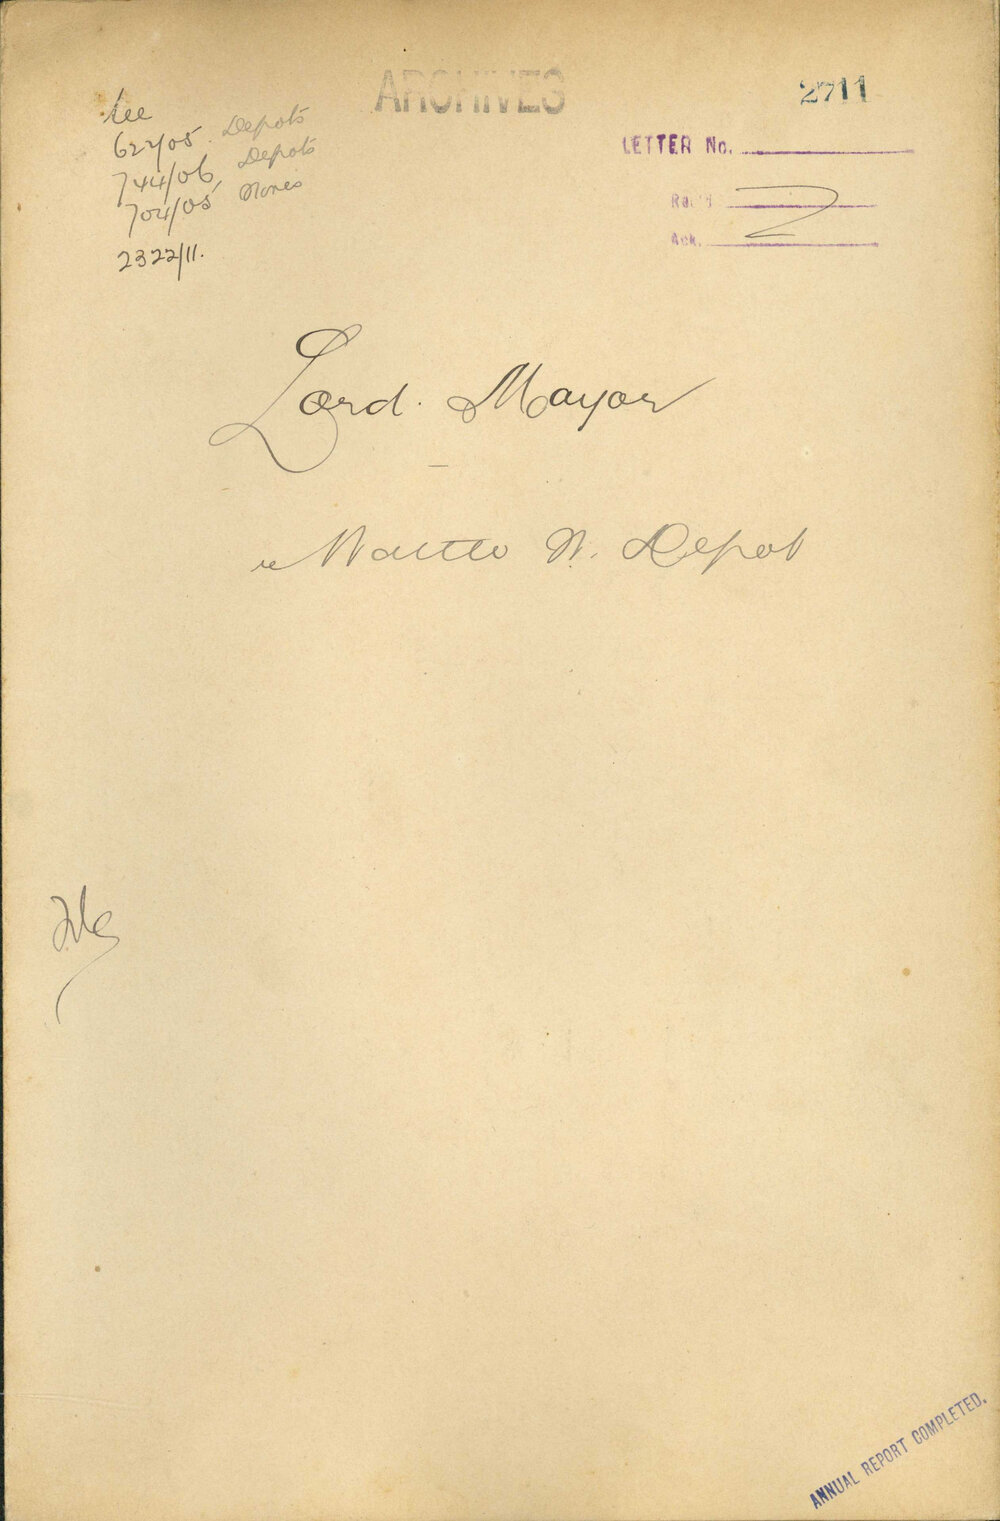 ARCHIVES
2711
See
622/05 Depots
744/06, Depots
704/05
2322/11.
LETTER No.
Rec'd
Ack.
Lord Mayor
re Wattle St. Depot
ANNUAL REPORT COMPLETED.